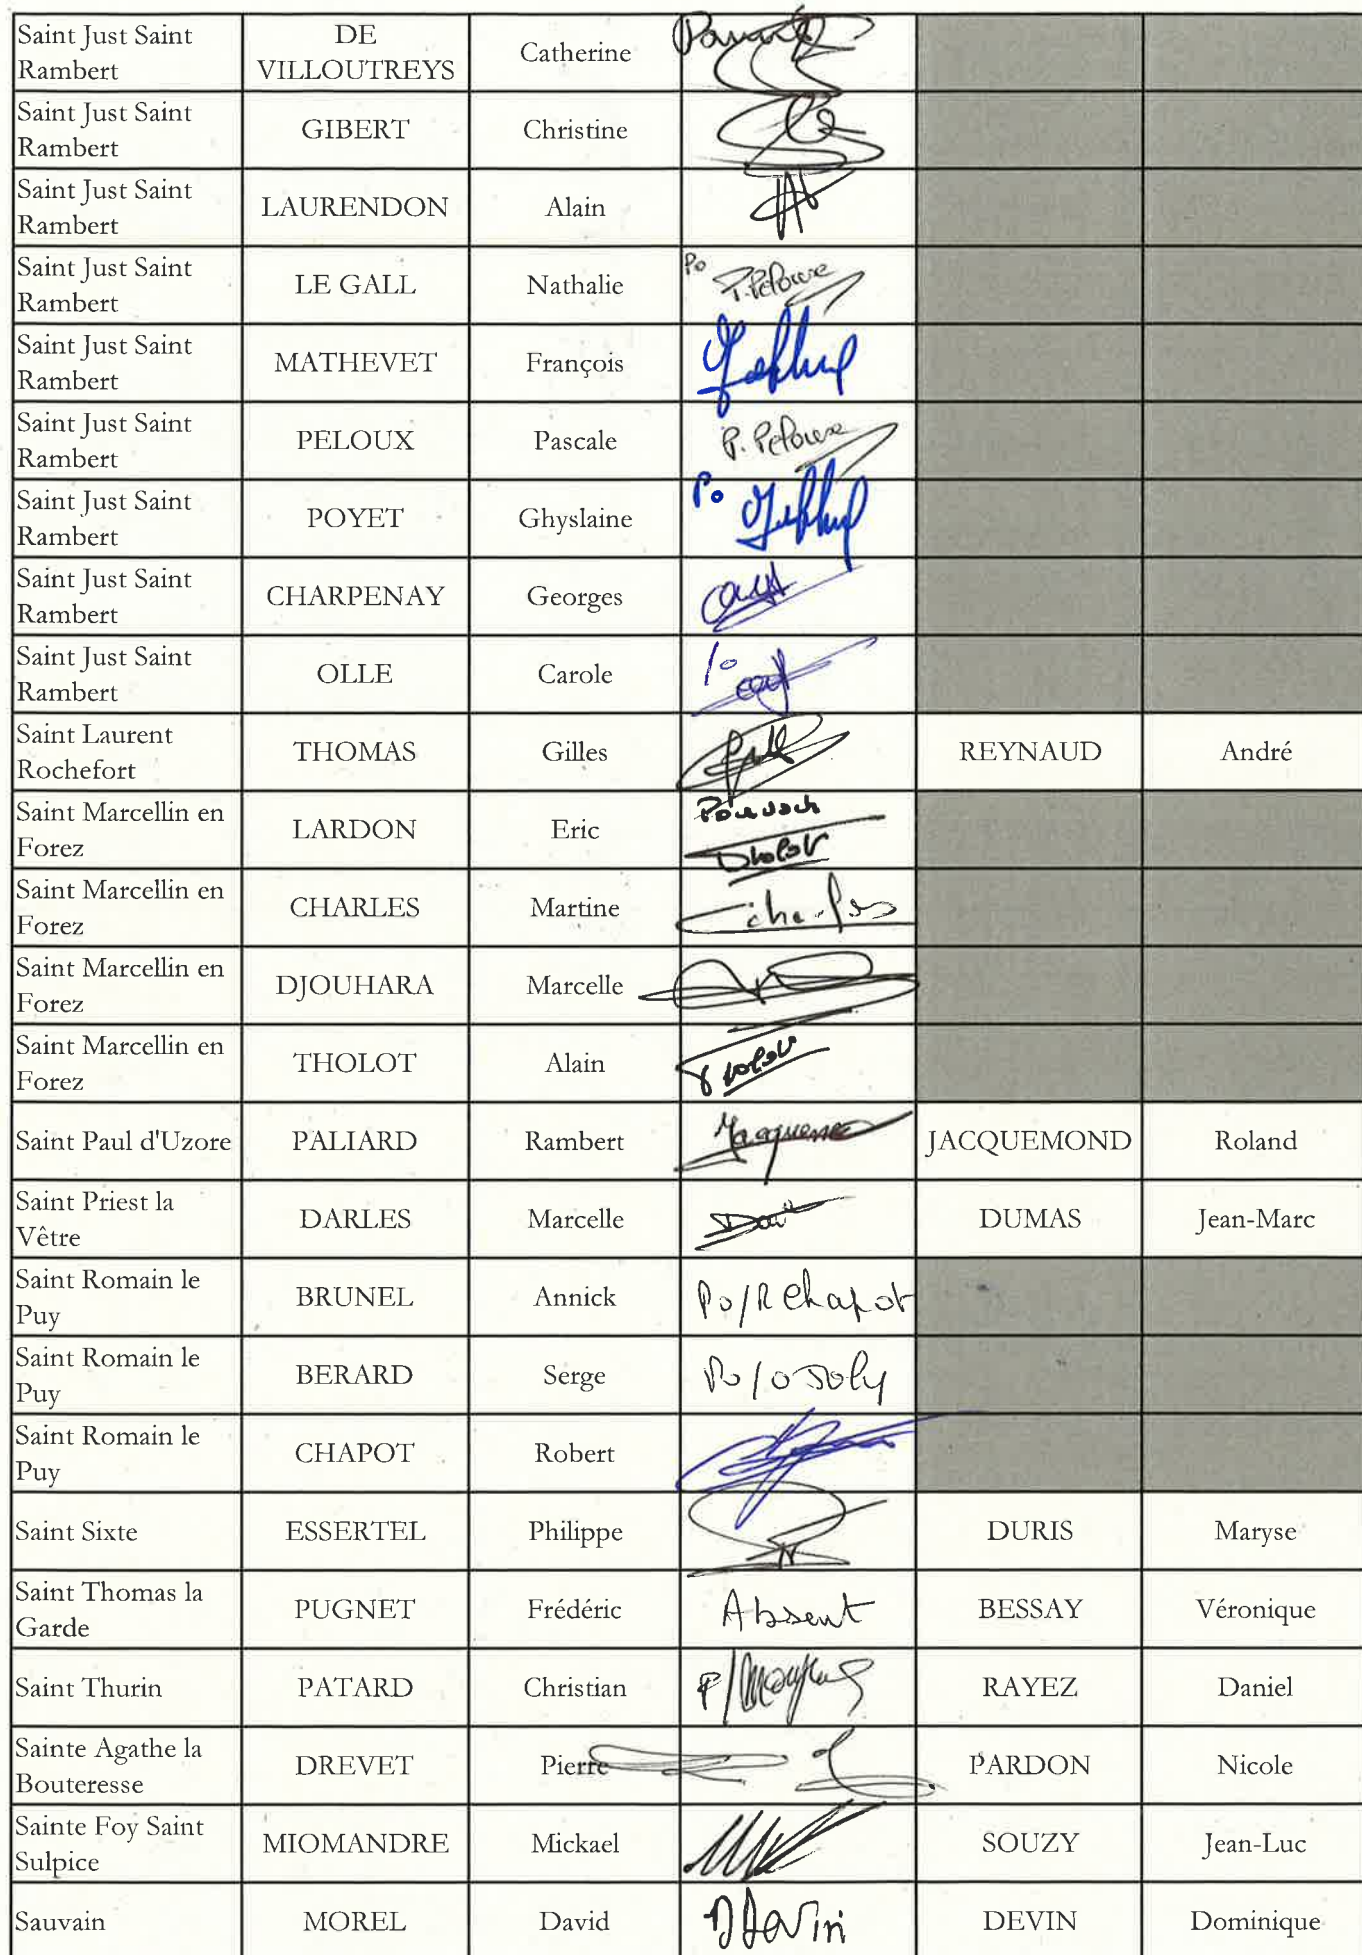 Saint Just Saint Rambert DE VILLOUTREYS Catherine
Saint Just Saint Rambert GIBERT Christine
Saint Just Saint Rambert LAURENDON Alain
Saint Just Saint Rambert LE GALL Nathalie Po P. Peloux
Saint Just Saint Rambert MATHEVET François
Saint Just Saint Rambert PELOUX Pascale P. Peloux
Saint Just Saint Rambert POYET Ghyslaine Po
Saint Just Saint Rambert CHARPENAY Georges
Saint Just Saint Rambert OLLE Carole Po
Saint Laurent Rochefort THOMAS Gilles REYNAUD André
Saint Marcellin en Forez LARDON Eric Tholot
Saint Marcellin en Forez CHARLES Martine Charles
Saint Marcellin en Forez DJOUHARA Marcelle
Saint Marcellin en Forez THOLOT Alain Tholot
Saint Paul d'Uzore PALIARD Rambert JACQUEMOND Roland
Saint Priest la Vêtre DARLES Marcelle DUMAS Jean-Marc
Saint Romain le Puy BRUNEL Annick Po/R Chapot
Saint Romain le Puy BERARD Serge Po/O Joly
Saint Romain le Puy CHAPOT Robert
Saint Sixte ESSERTEL Philippe DURIS Maryse
Saint Thomas la Garde PUGNET Frédéric Absent BESSAY Véronique
Saint Thurin PATARD Christian RAYEZ Daniel
Sainte Agathe la Bouteresse DREVET Pierre PARDON Nicole
Sainte Foy Saint Sulpice MIOMANDRE Mickael SOUZY Jean-Luc
Sauvain MOREL David D Devin DEVIN Dominique